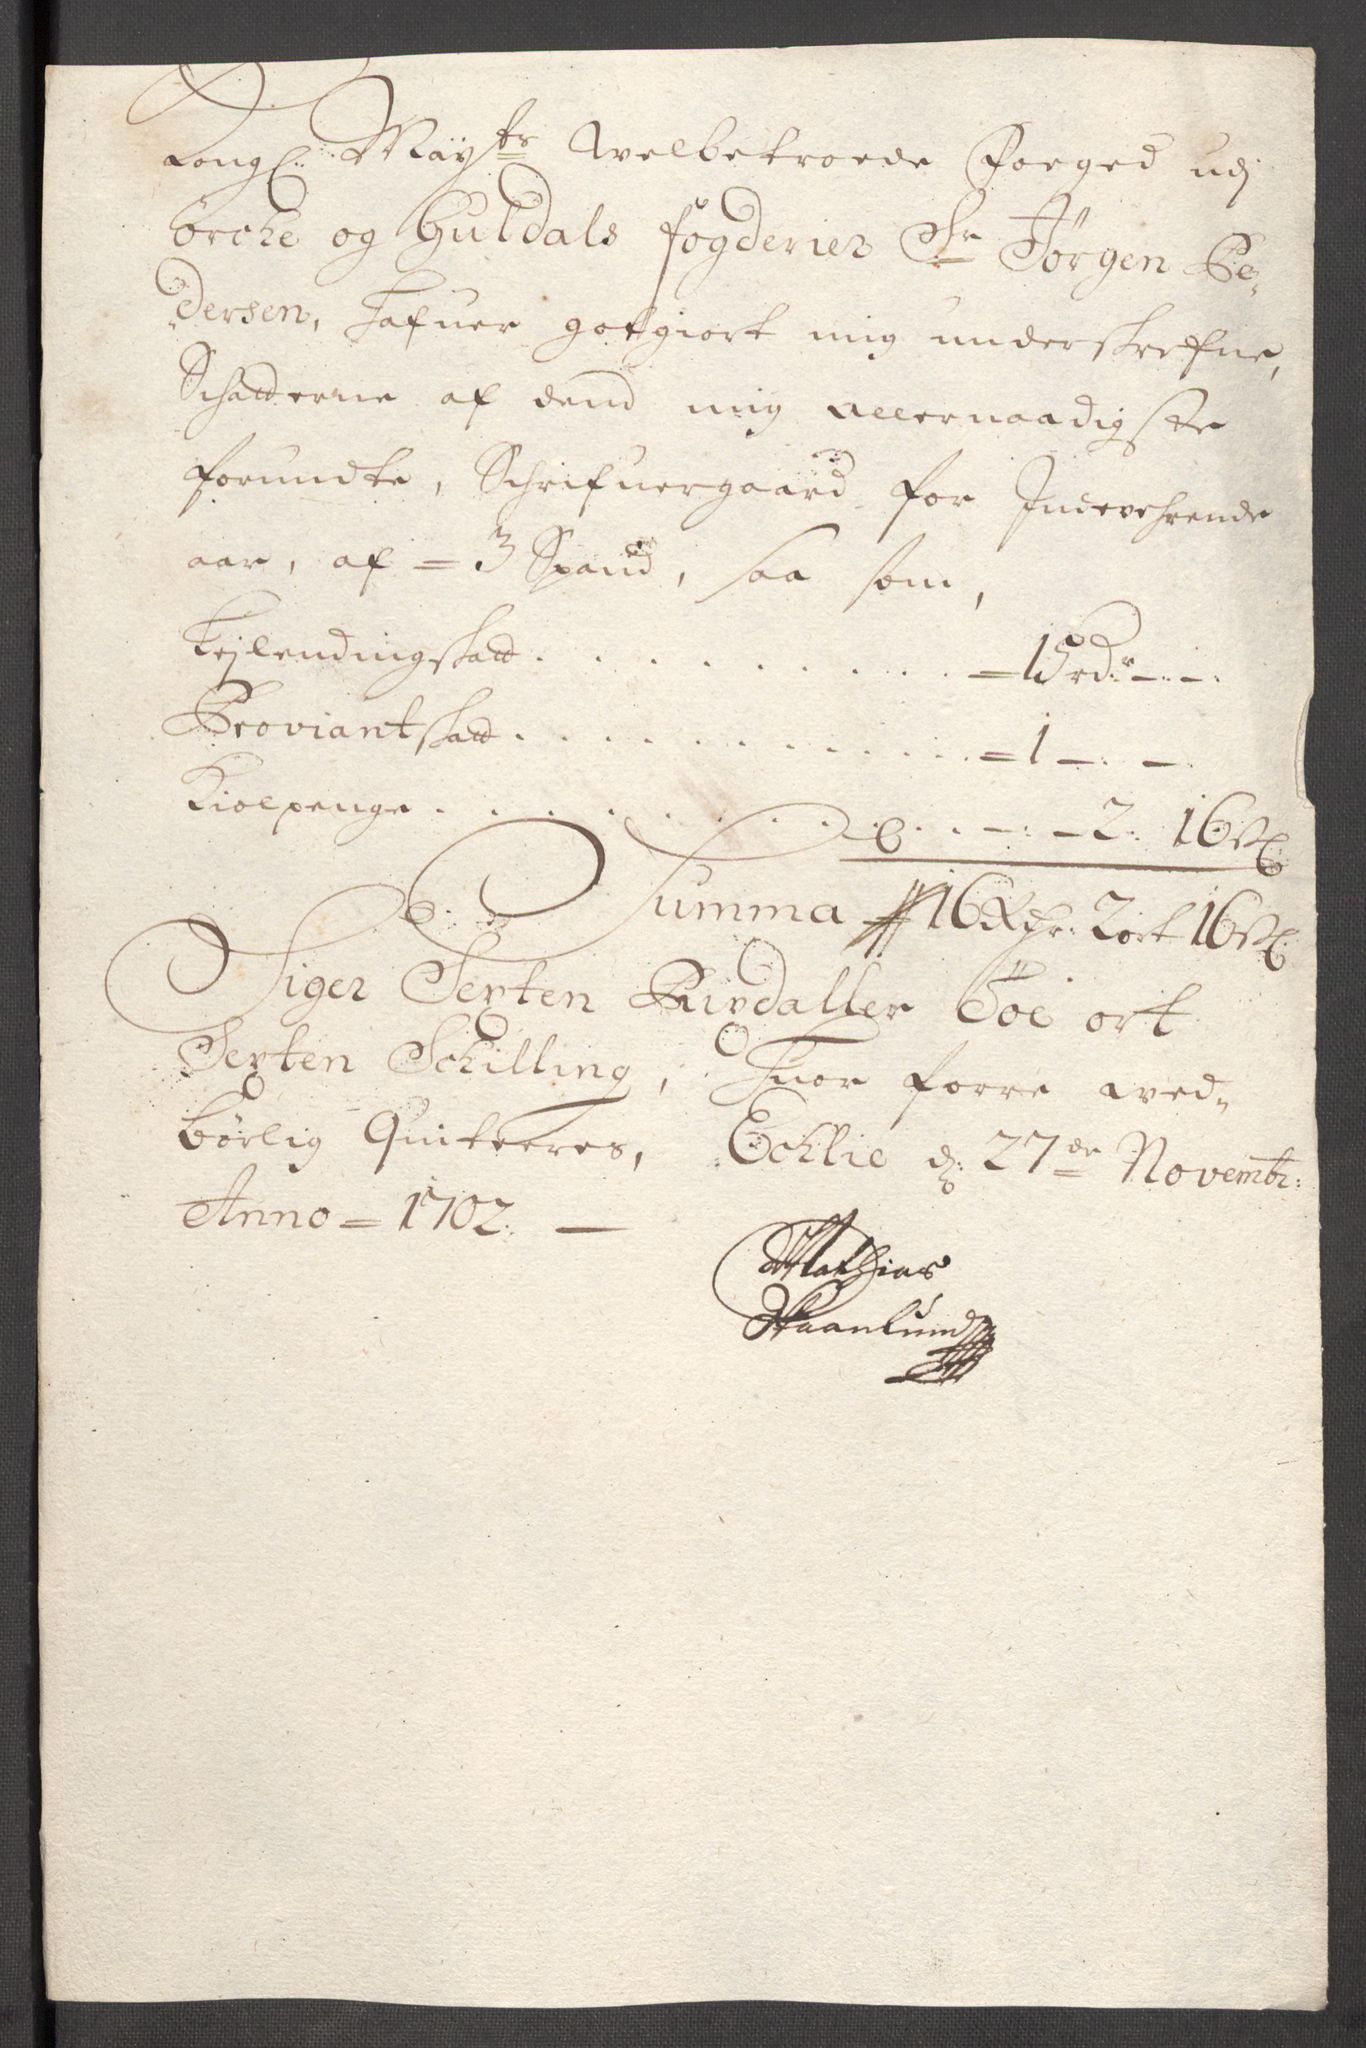 Kongl: Mäÿ^ts Welbetroede Foeged udj
Örche og Guldals fogderier Sr Jörgen Pe-
dersen, Hafuer gotgiort mig underskrefne,
Schatterne af dend mig allernaadigste
forundte, Schrifuergaard for Indevehrende
aar, af = 3 Spand, saa som,
Lejlendingskatt . . . . . . . . . = 15 rdr - . - .
Proviantskatt . . . . . . . . . . = 1 - . - .
Kiolpenge . . . . . . . . . . - . - 2. 16 sk:
Summa 16 Rdr: 2 ort 16 sk:
Siger Sexten Rixdaller Töe ort
Sexten Schilling, Huor forre wed-
börlig Quiteeres, Echlie d: 27de Novembr:
Anno = 1702. -
Mathias
Skaanlund